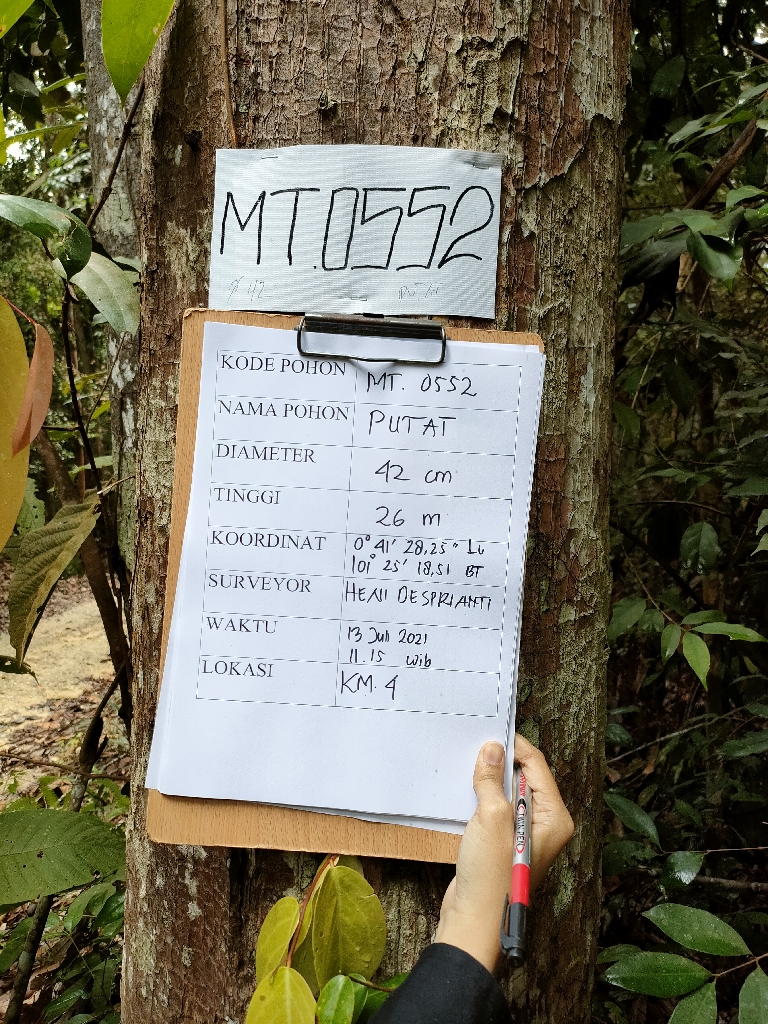 MT.0552
PUTAT
KODE POHON MT. 0552
NAMA POHON PUTAT
DIAMETER 42 cm
TINGGI 26 m
KOORDINAT 0° 41' 28,25" LU
101° 25' 18,51 BT
SURVEYOR HENI DESPRIANTI
WAKTU 13 Juli 2021
11.15 wib
LOKASI KM. 4